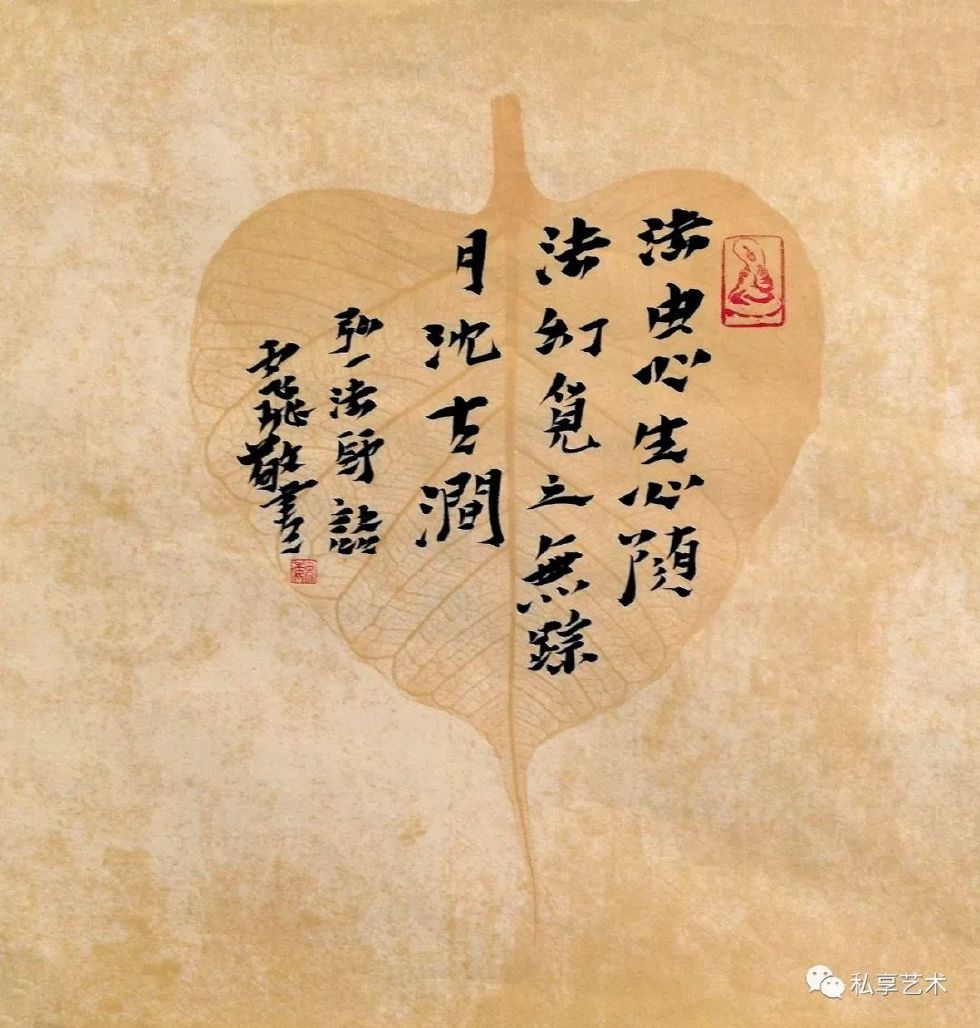 法由心生心随
法幻覓之無踪
月沈古澗
弘一法師語
敬書
私享艺术